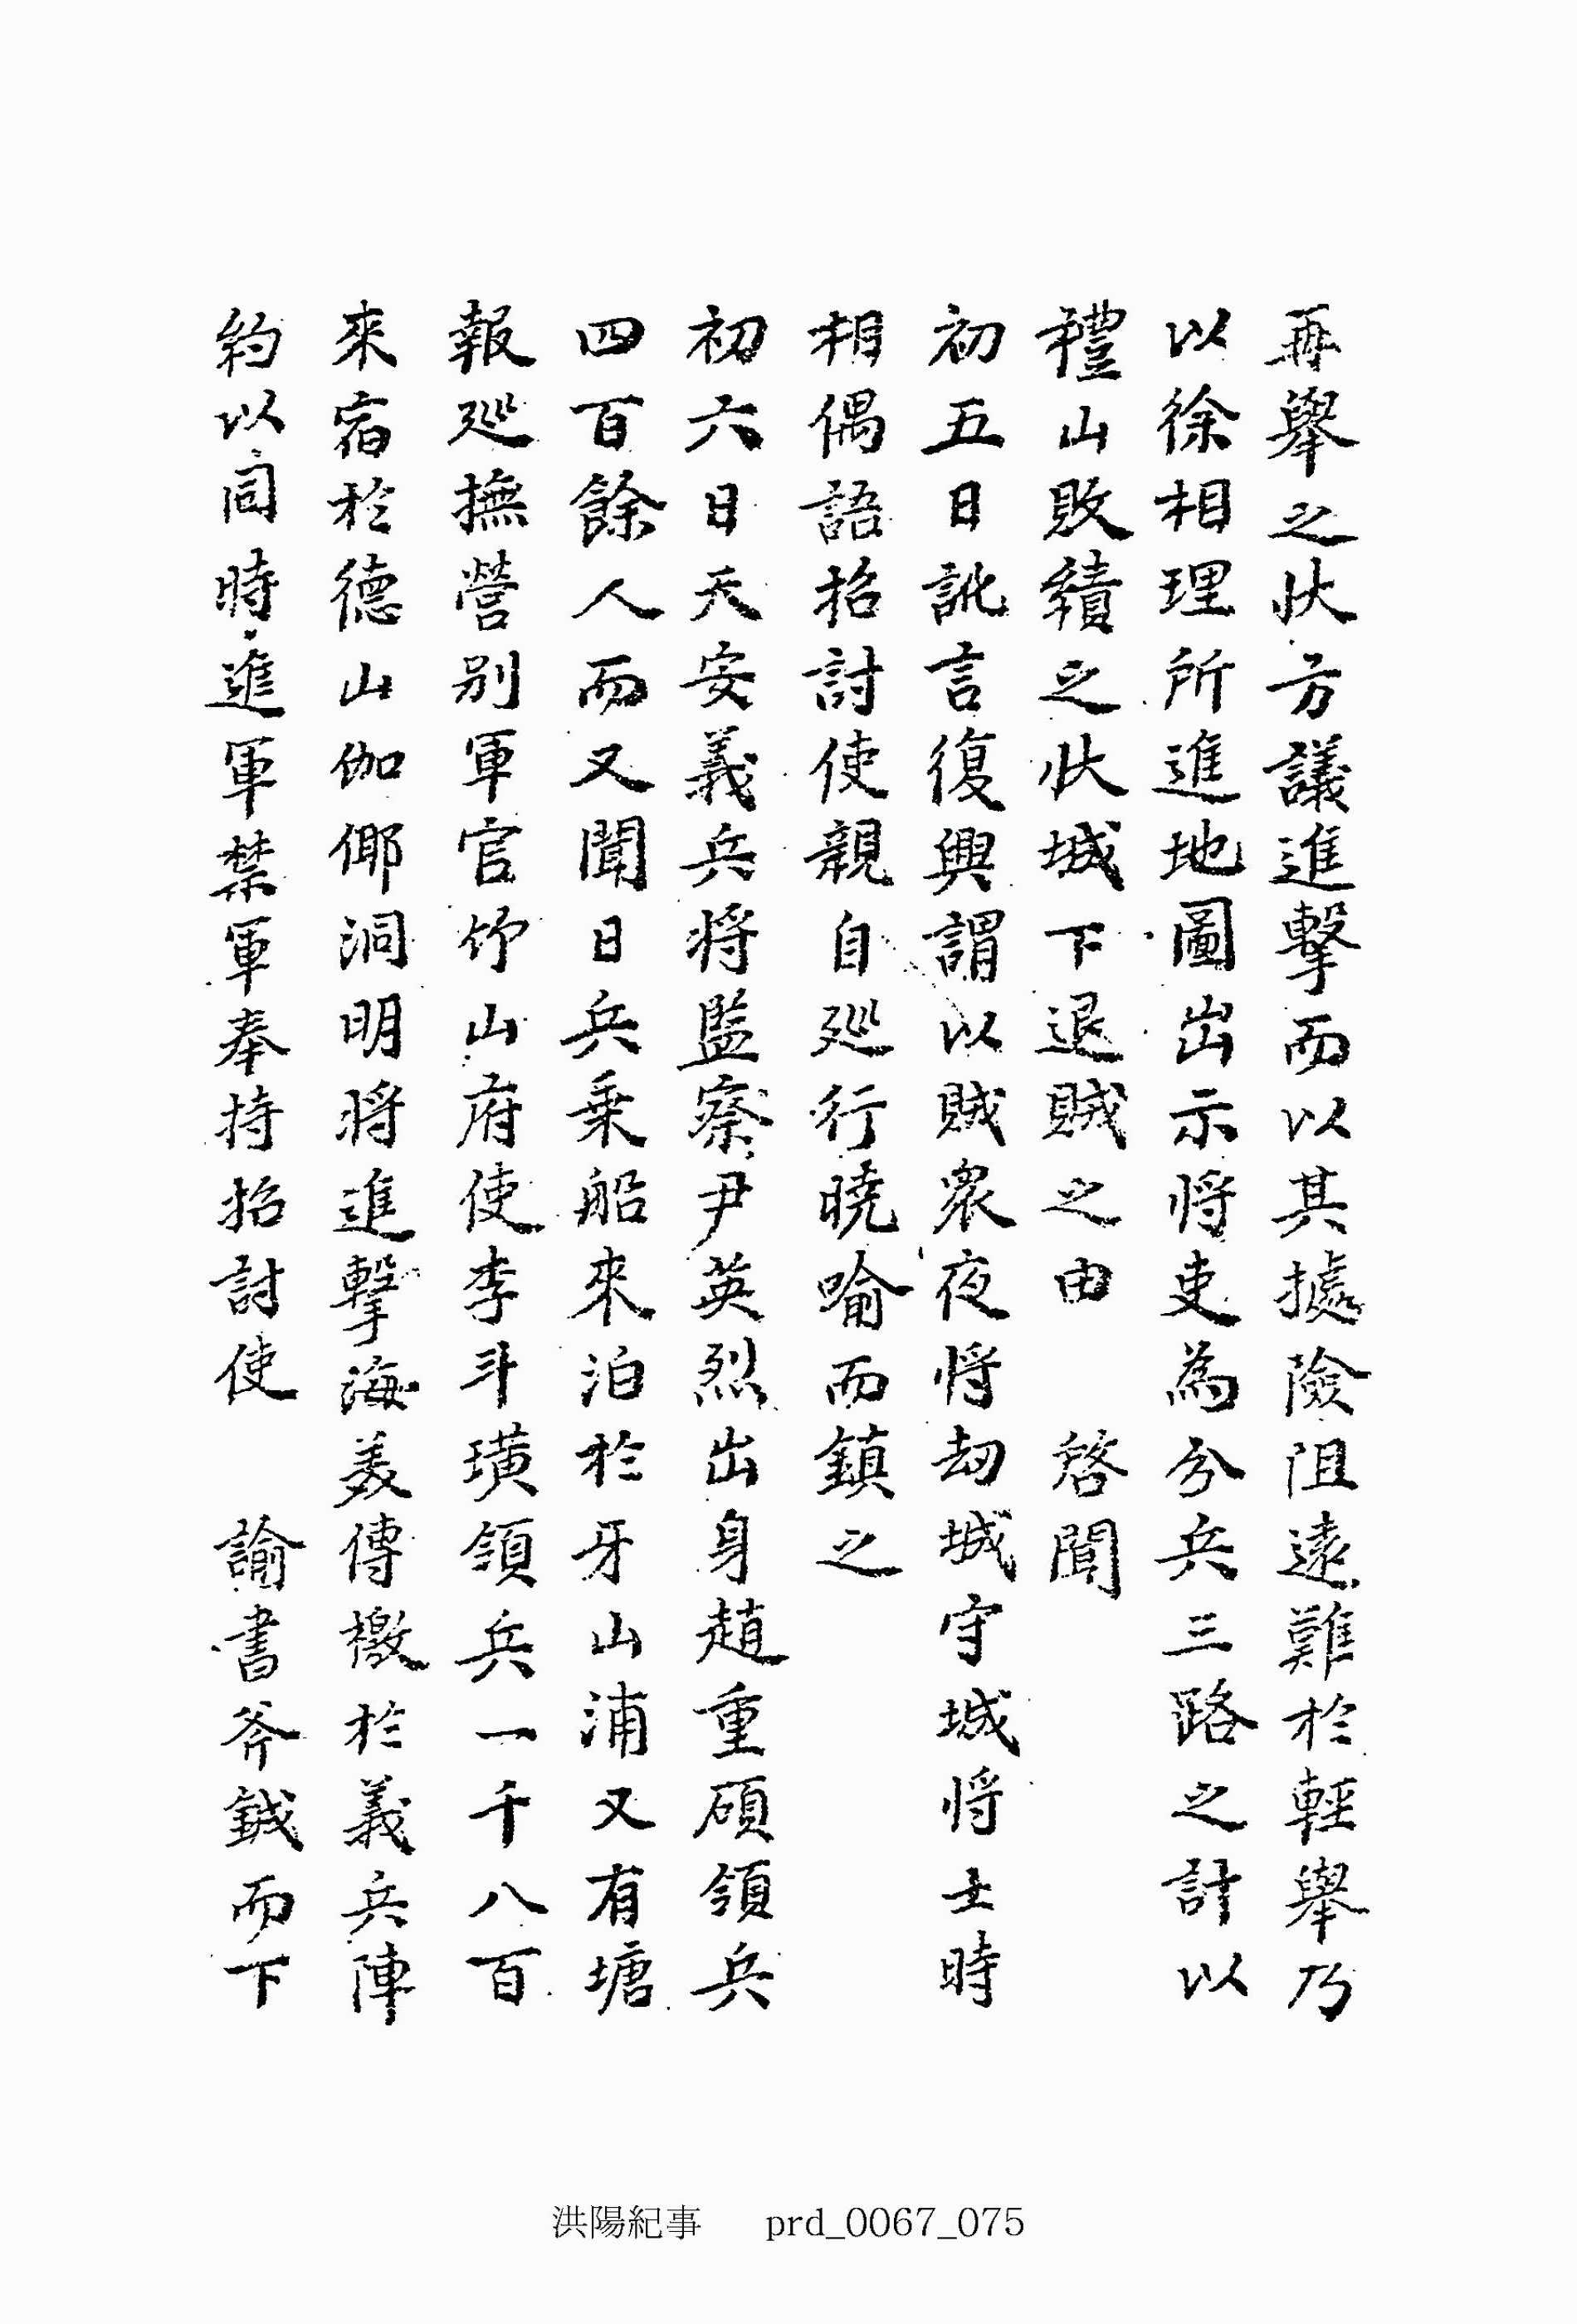 再擧之狀方議進擊而以其據險阻遠難於輕擧乃
以徐相理所進地圖出示將吏為分兵三路之計以
禮山敗績之狀城下退賊之由 啓聞
初五日訛言復興謂以賊衆夜將刼城守城將士時
相偶語招討使親自廵行曉喻而鎮之
初六日天安義兵將監察尹英烈出身趙重碩領兵
四百餘人而又聞日兵乘船來泊於牙山浦又有塘
報廵撫營别軍官竹山府使李斗璜領兵一千八百
來宿於德山伽倻洞明將進擊海美傳檄於義兵陣
約以同時進軍禁軍奉持招討使 諭書斧鉞而下
洪陽紀事 prd_0067_075